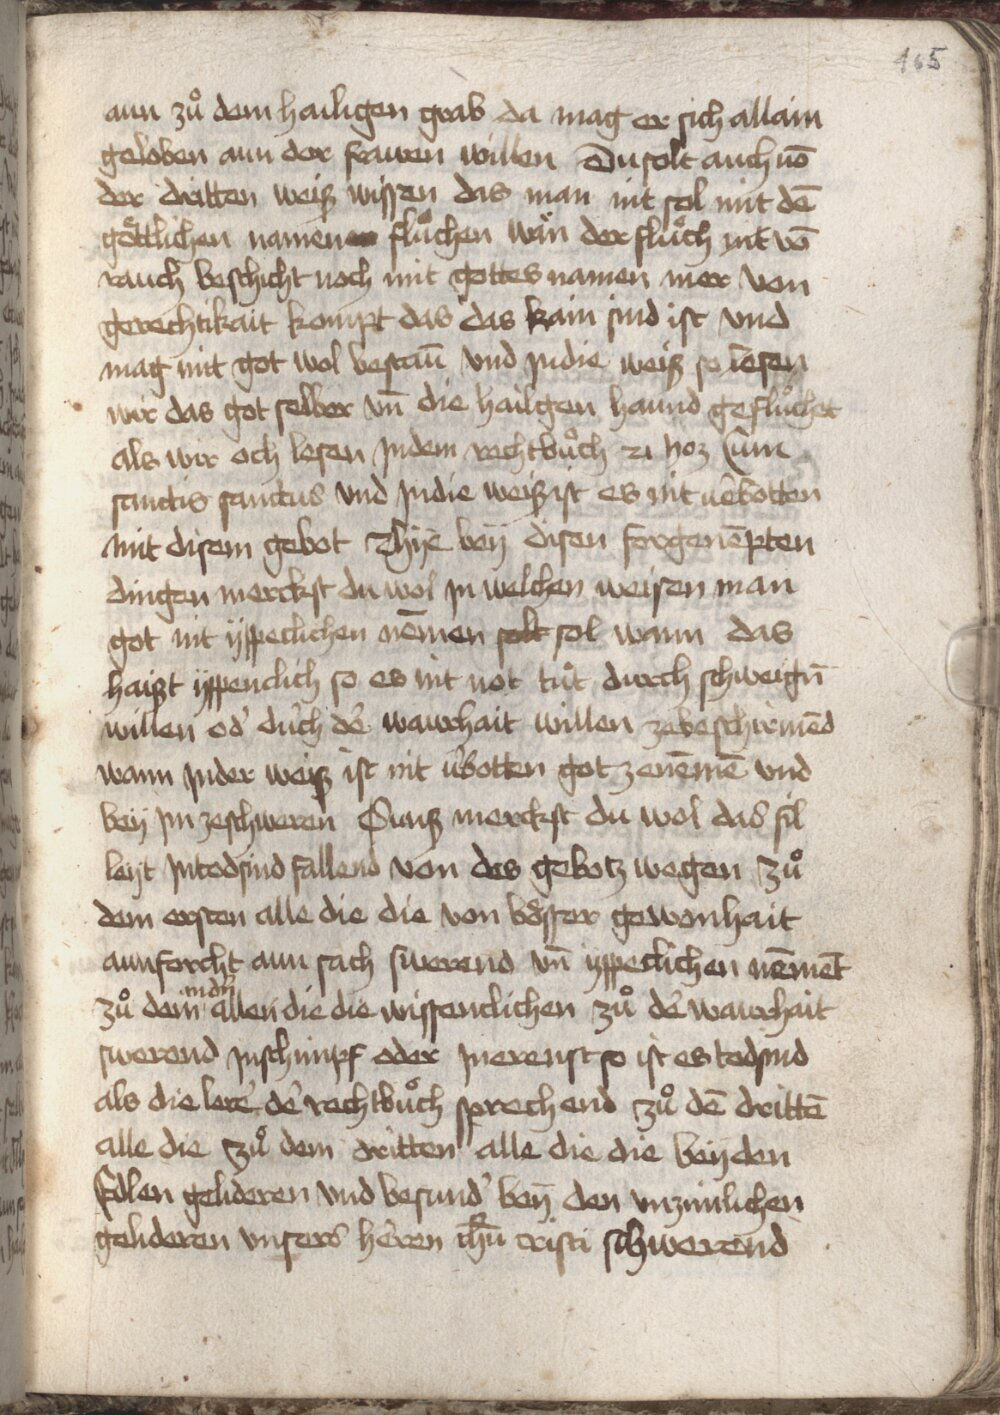 165
aun zuͦ dem hailigen grab da mag er sich allain
geloben aun der frawen willen Du solt auch uō
der dritten weiß wissen das man nit sol mit dē
goͤttlichen namen fluͦchen wān der fluͦch nit vō
rauch beschicht noch mit gottes namen mer von
gerechtikait kompt das das kain sind ist vnd
mag mit got wol bestaū vnd jndie weiß so lesen
wir das got selber vn̄ die hailgen haund gefluͦchet
als wir och lesen jndem rechtbuͦch
sanctis sanctus vnd jndie weiß ist es nit ue᷑botten
mit disem gebot beӱ disen forgenēpten
dingen merckst du wol jn welchen weisen man
got nit ӱppeclichen nēmen sol wann das
haißt ӱppenclich so es nit not tuͦt durch schweign̄
willen od᷑ du᷑ch de᷑ waurhait willen zebeschirmēd
wann jnder weiß ist nit u᷑botten got zenēmē vnd
beӱ jm zeschweren Sunß merckst du wol das fil
leӱt jntodsind fallend von des gebotz wegen zuͦ
dem ersten alle die die von boͤsser gewonhait
aunforcht aun sach swerend vn̄ ӱppeclichen nēmēt
zuͦ dem andn᷑ allen die die wissenclichen zuͦ de᷑ waurhait
swerend jnschimpf oder jnerenst so ist es todsind
als die lere᷑ de᷑ rechtbuͦch sprechend zuͦ dē drittē
alle die zuͦ dem dritten alle die die beӱ den
Edlen gelideren vnd besund᷑ beӱ den vnzimlichen
gelideren vnsers he᷑ren ih̄u cristi schwerend